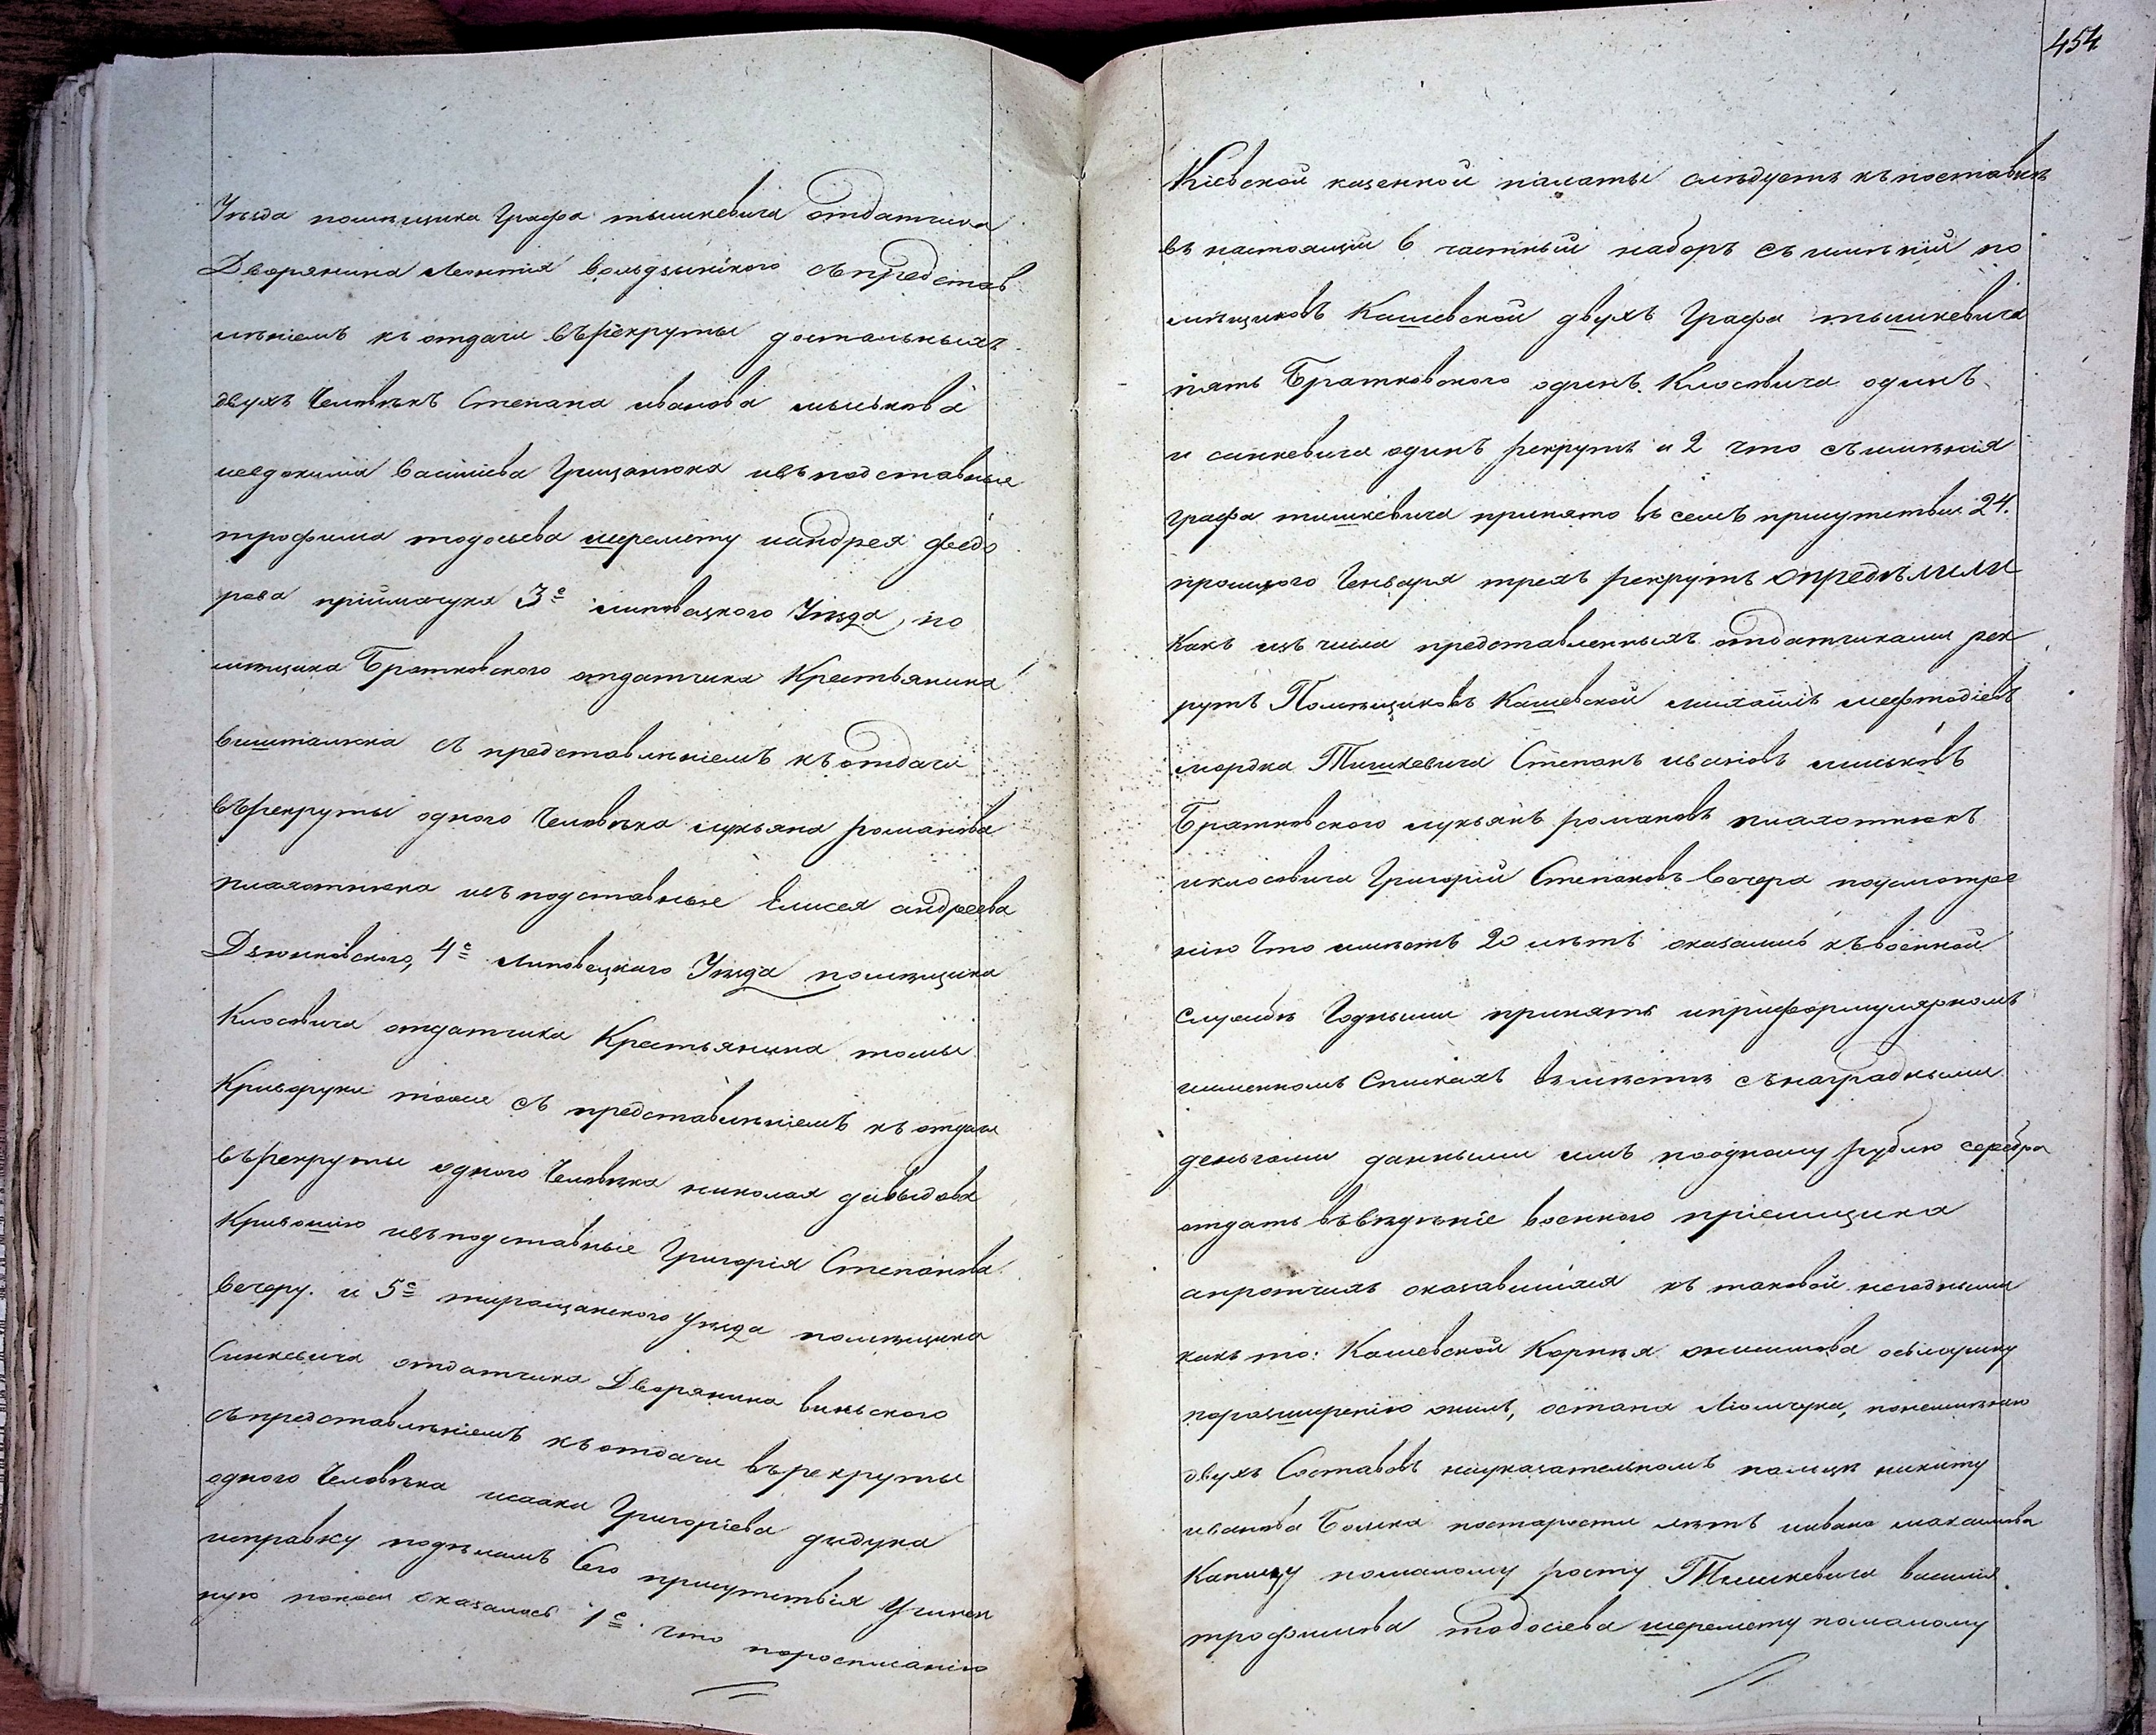 Уѣзда помѣщика Графа тышкевича отдатчика
Дворянина Леонтія вольдзынского съ представ
лѣніемъ къ отдачи въ рекруты достальныхъ
двухъ Человѣкъ Степана иванова миськова
иевдокима Васильева Грицанюка ивъ подставные
трофима тодосьева шеремету иандрея федо
рова приймачука 3е липовецкого Уѣзда, по
мѣщика Братковского отдатчика Крестьянина
вишталюка съ представлѣніемъ къ отдачи
въ рекруты одного Человѣка лукьяна романова
плахотнюка ивъ подставные Елисея андреева
Дзюнковского, 4е Липовецкого Уѣзда помѣщика
Клосовича отдатчика Крестьянина томы
Криворуки тоже съ представлѣніемъ къ отдачи
въ рекруты одного Человѣка николая давыдова
Кривошию ивъ подставные Григорія Степанова
Вечеру. и 5е таращанского Уѣзда помѣщика
Синкевича отдатчика Дворянина виньского
съ представлѣніемъ къ отдачи въ рекруты
одного Человѣка исаака Григоріева дидука
исправку подѣламъ Сего присутствія Учинен
ную по коеи оказалось 1е что поросписанію
454
Кіевской казенной палаты слѣдуетъ къ поставкѣ
въ настоящій 6 частный наборъ съ имѣній по
мѣщиковъ Кашевской двухъ Графа тышкевича
пять Братковского одинъ Клосовича одинъ
и синкевича одинъ рекрутъ и 2 что съ имѣнія
графа тишкевича принято въ семъ присутствіи 24.
прошлого Генваря трехъ рекрутъ Опредѣлили
Какъ изъ числа представленныхъ отдатчиками рек
рутъ Помѣщиковъ Кашевской михайлъ мефтодіевъ
мордка Тишкевича Степанъ ивановъ миськовъ
Братковского лукьянъ романовъ плахотнюкъ
иклосовича Григорій Степановъ Вечера поусмотре
нію Что имѣетъ 20 лѣтъ оказались къ военной
службѣ Годными принять ипри формулярномъ
иименномъ Спискахъ вмѣстѣ съ наградными
деньгами данными имъ поодному рублю серебра
отдать въ вѣденіе военного пріемщика
апротчихъ оказавшихся къ таковой негодными
какъ то: Кашевской Корнѣя онисимова
поразширенію жилъ, остапа Люльчука, понеимѣнію
двухъ Составовъ науказательномъ пальцѣ никиту
иванова Бойка постарости лѣтъ иивана
Капицу помалому росту Тишкевича василія
трофимова тодосіева шеремету помалому